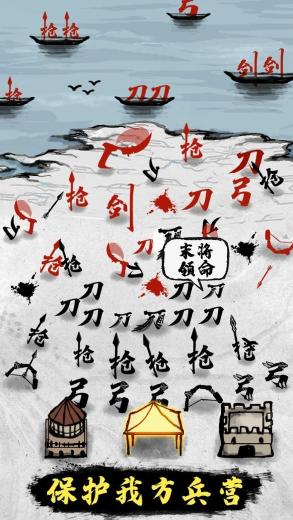 弓
枪 枪
剑 剑
枪
刀 刀
枪
刀
枪
弓
枪
剑
刀
枪 枪
末将
领命
刀
刀 刀
刀 刀 刀
刀 刀 刀
枪
枪 枪 枪 枪 枪
弓 弓 弓 弓 弓
保护我方兵营